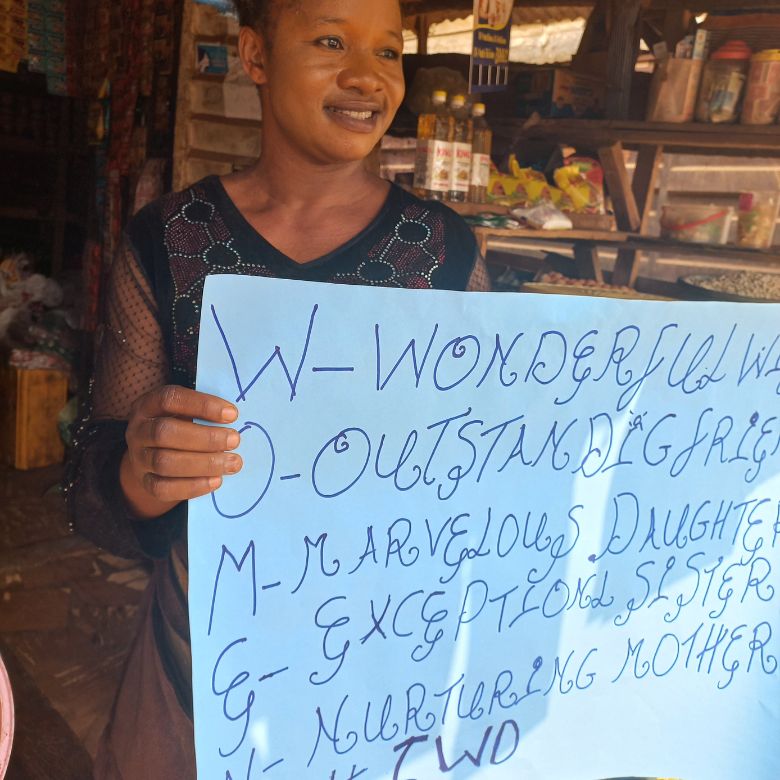 W - WONDERFUL WI
O - OUTSTANDIG FRIEN
M - MARVELOUS DAUGHTER
G - EXCEPTIONL SISTER
N - NURTURING MOTHER
TWO